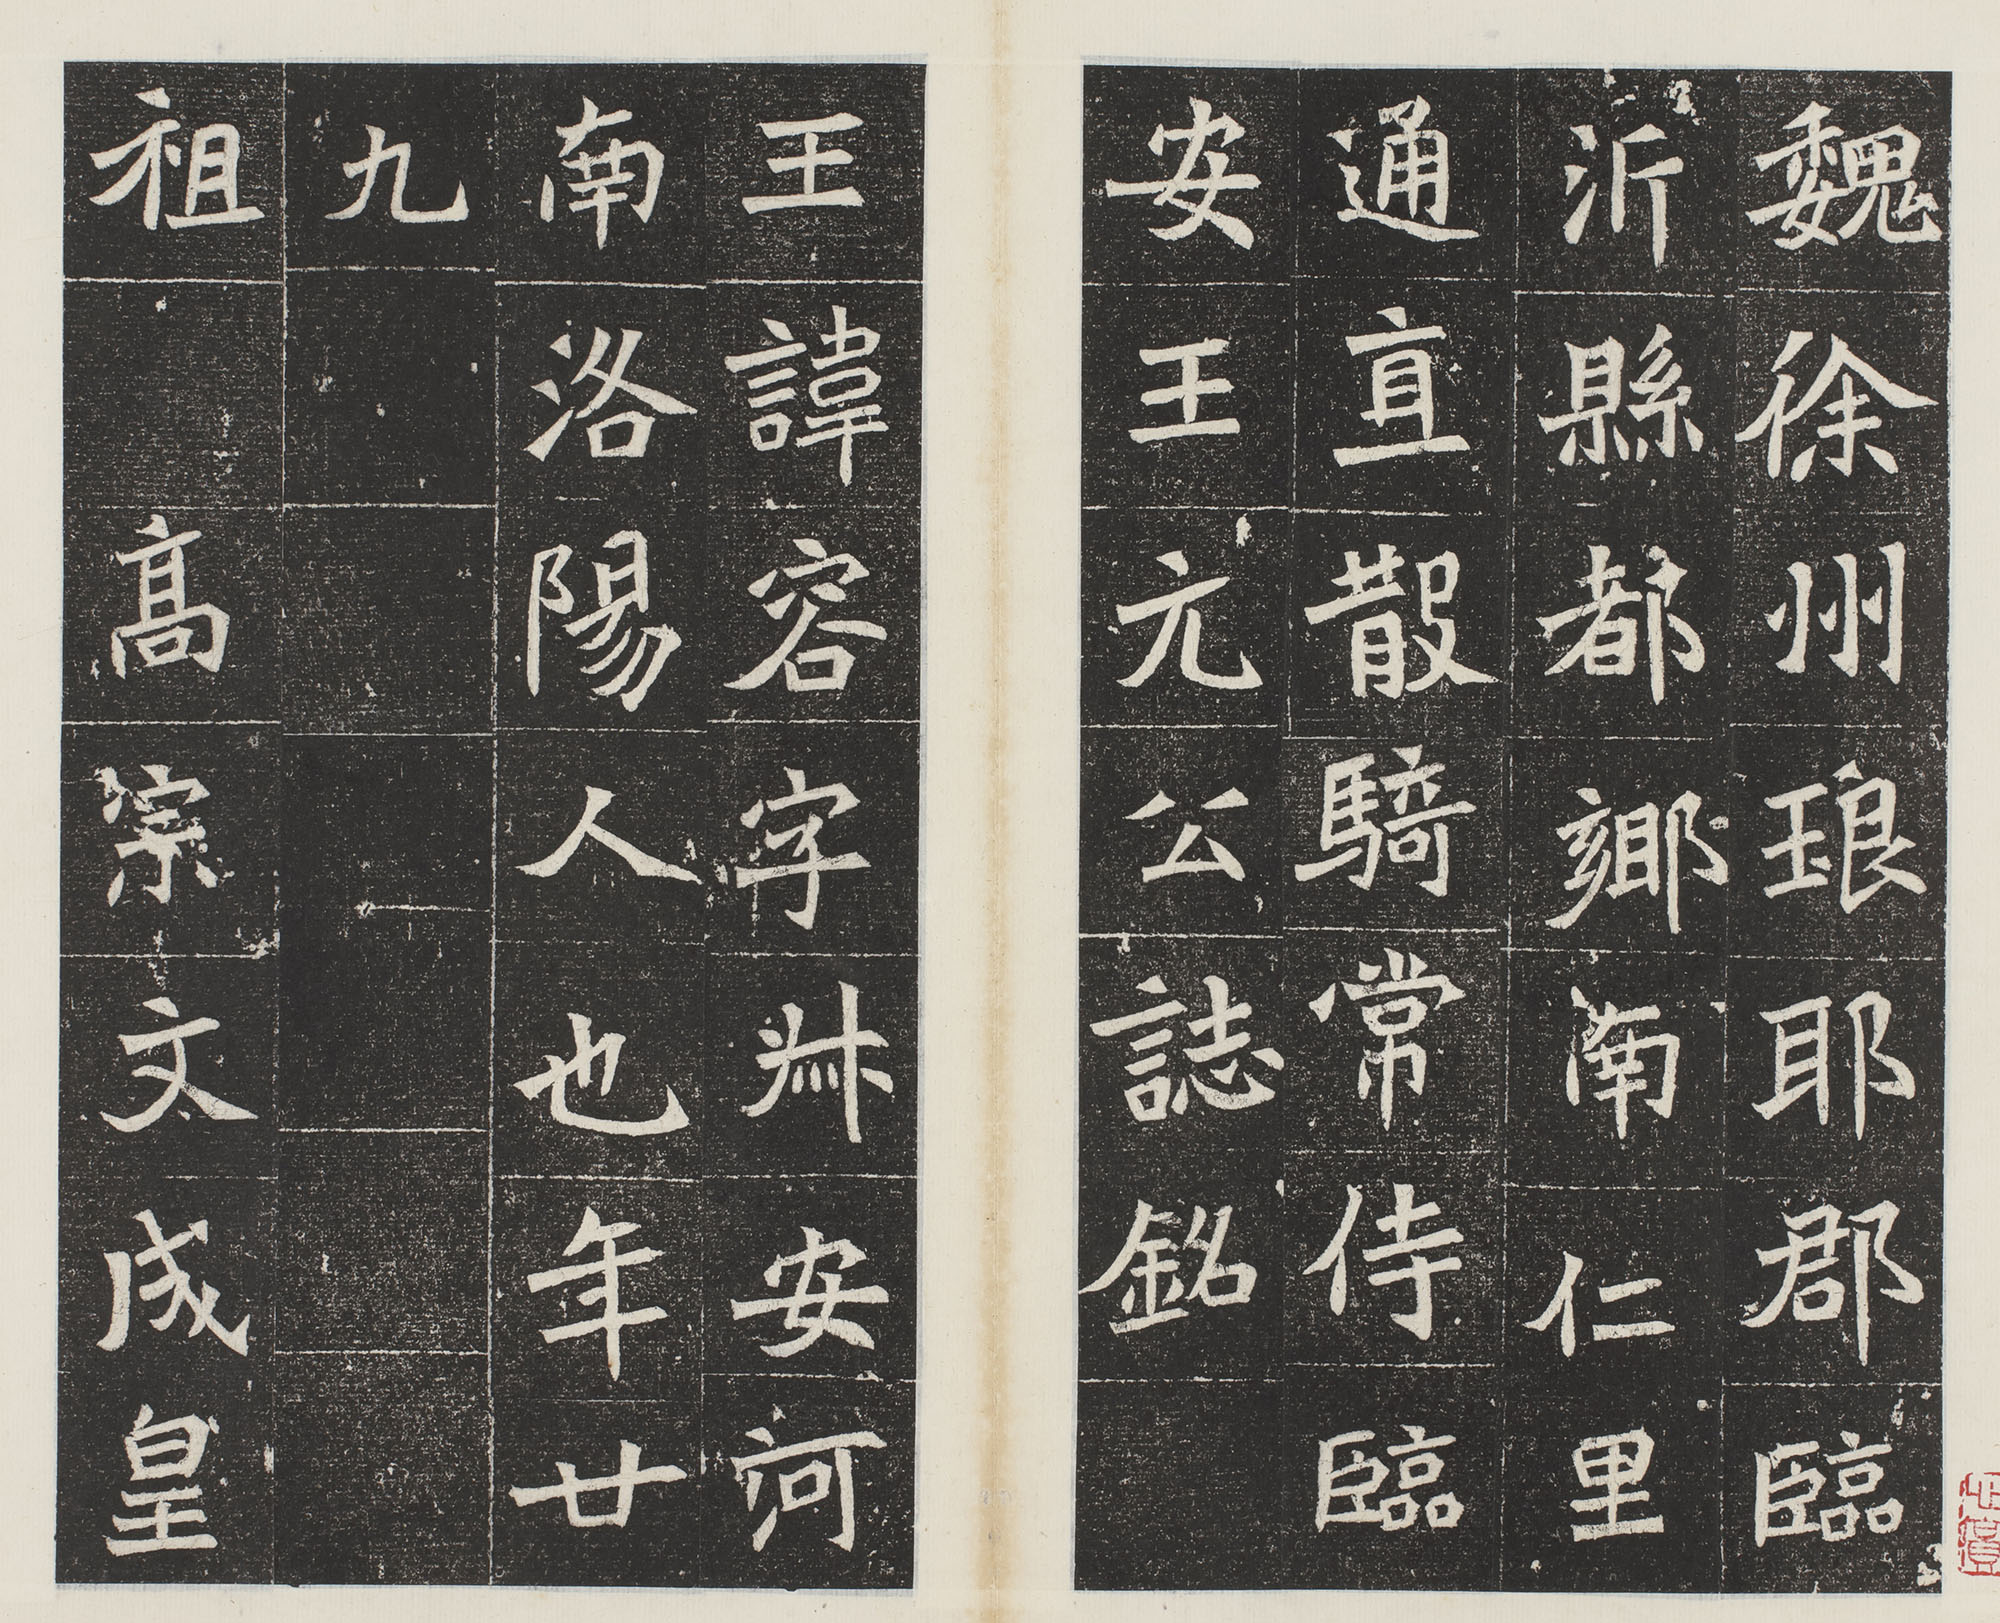 魏徐州琅耶郡臨
沂縣都鄉南仁里
通直散騎常侍臨
安王元公誌銘
王諱容字叔安河
南洛陽人也年廿
九
祖 高宗文成皇